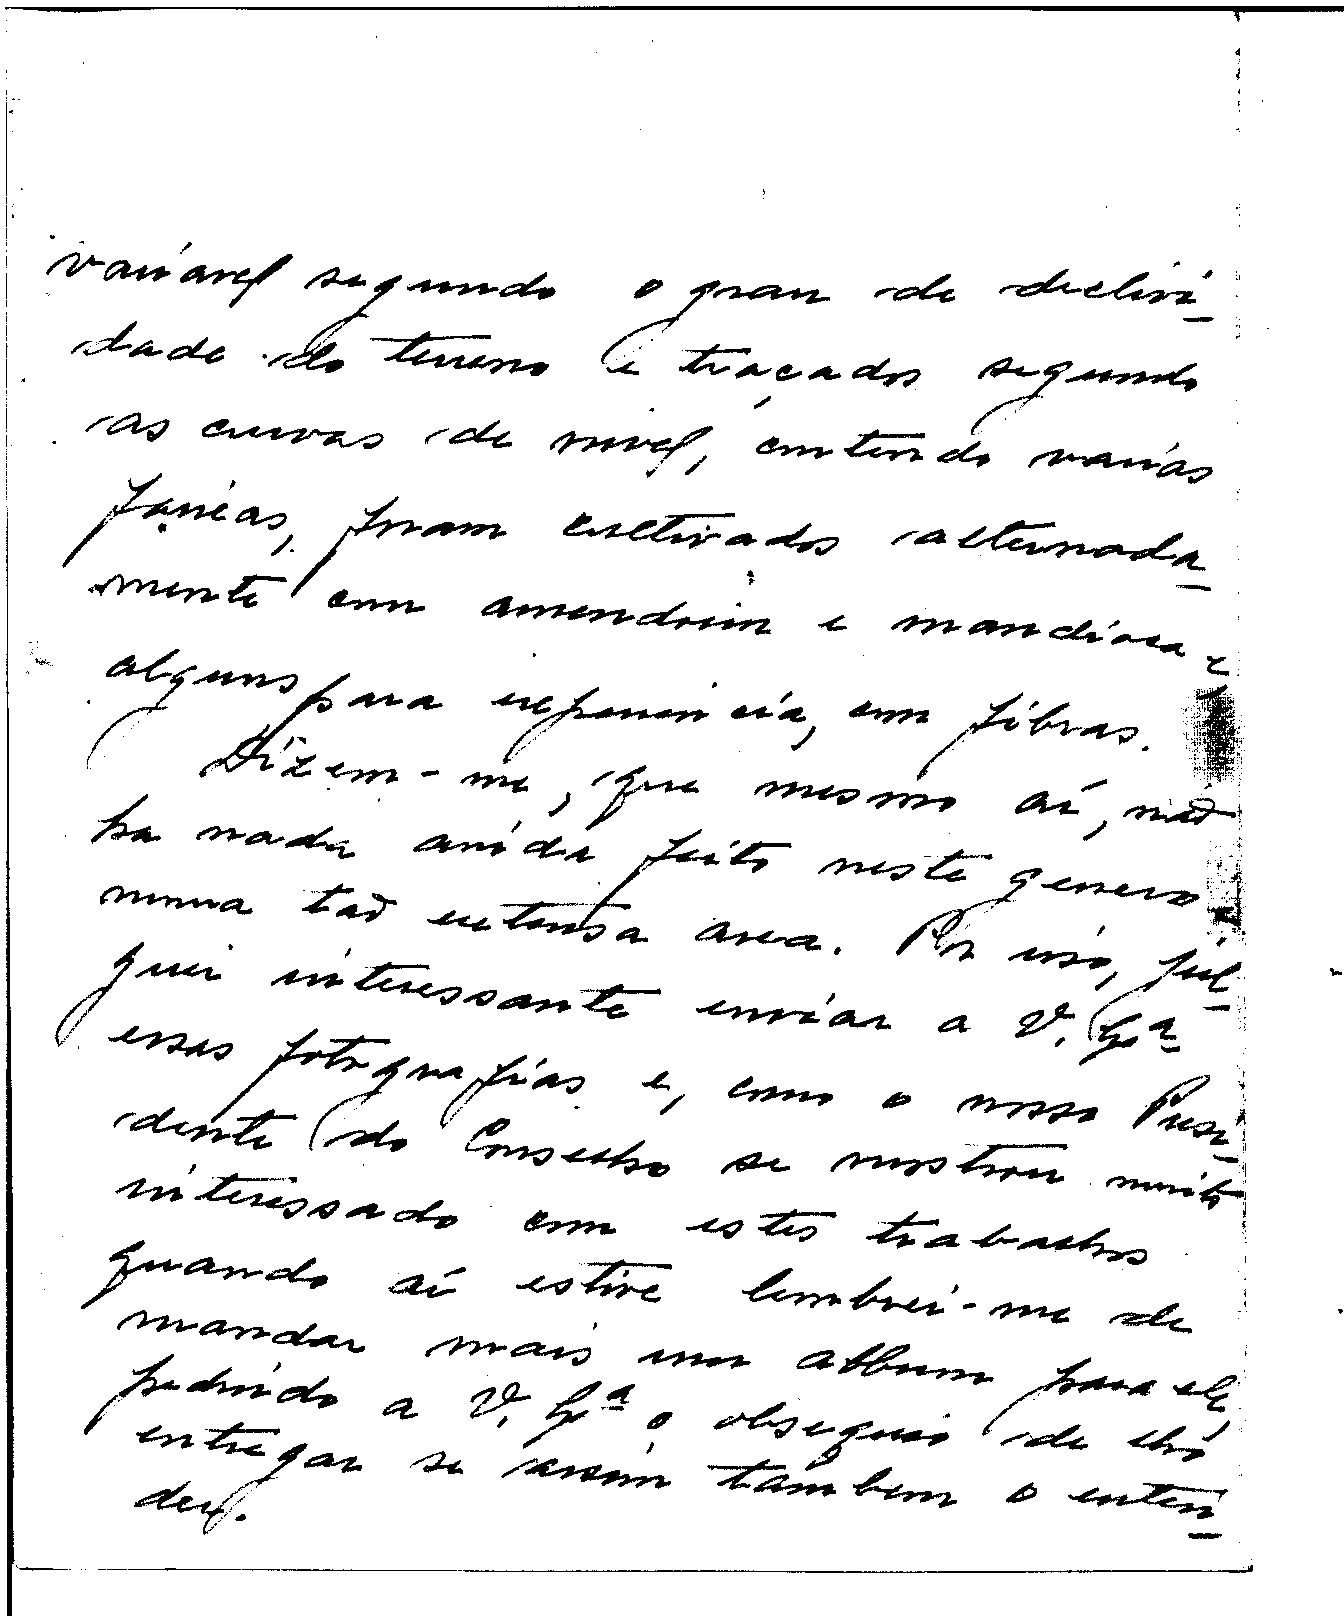 variavel segundo o grau de declivi-
dade do terreno e traçados segundo
as curvas de nivel, contendo varias
faxeas, foram cultivados alternada-
mente com amendoim e mandioca e
alguns para experiencia, com fibras.
Dizem-me, que mesmo aí, não
ha nada ainda feito neste genero
numa tão extensa area. Por isso, jul-
guei interessante enviar a V. Exª
essas fotografias e, como o nosso Presi-
dente do Conselho se mostrou muito
interessado com estes trabalhos
quando aí estive lembrei-me de
mandar mais um album para ele,
pedindo a V. Exª o obsequio de lho
entregar se assim tambem o enten-
der.